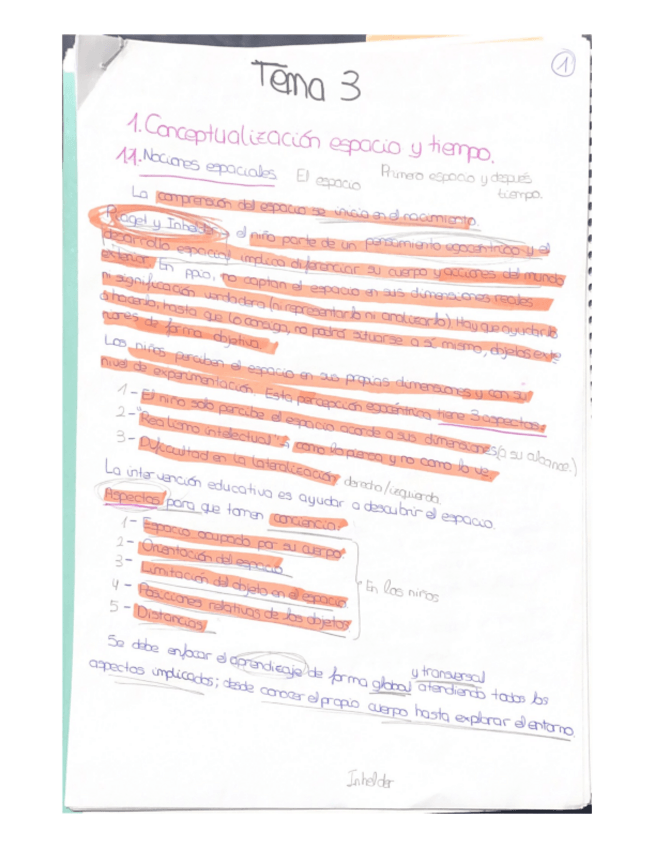 1
Tema 3
1. Conceptualización espacio y tiempo.
1.1. Nociones espaciales El espacio Primero espacio y después
tiempo.
La comprensión del espacio se inicia en el nacimiento.
Piaget y Inhelder, el niño parte de un pensamiento egocéntrico y el
desarrollo espacial implica diferenciar su cuerpo y acciones del mundo
exterior. En ppio, no captan el espacio en sus dimensiones reales
ni significación verdadera (ni representarlo ni analizarlo) Hay que ayudarlo
a hacerlo, hasta que lo consiga, no podrá situarse a sí mismo, objetos exte
riores de forma objetiva.
Los niños perciben el espacio en sus propias dimensiones y con su
nivel de experimentación. Esta percepción egocéntrica tiene 3 aspectos:
1- El niño solo percibe el espacio acorde a sus dimensiones (a su alcance.)
2- "Realismo intelectual" → como lo piensa y no como lo ve
3- Dificultad en la lateralización derecha/izquierda.
La intervención educativa es ayudar a descubrir el espacio.
Aspectos para que tomen conciencia:
1- Espacio ocupado por su cuerpo
2- Orientación del espacio
3- Limitación del objeto en el espacio
4- Posiciones relativas de los objetos
5- Distancias
En los niños
Se debe enfocar el aprendizaje de forma global y transversal atendiendo todos los
aspectos implicados; desde conocer el propio cuerpo hasta explorar el entorno.
Inhelder